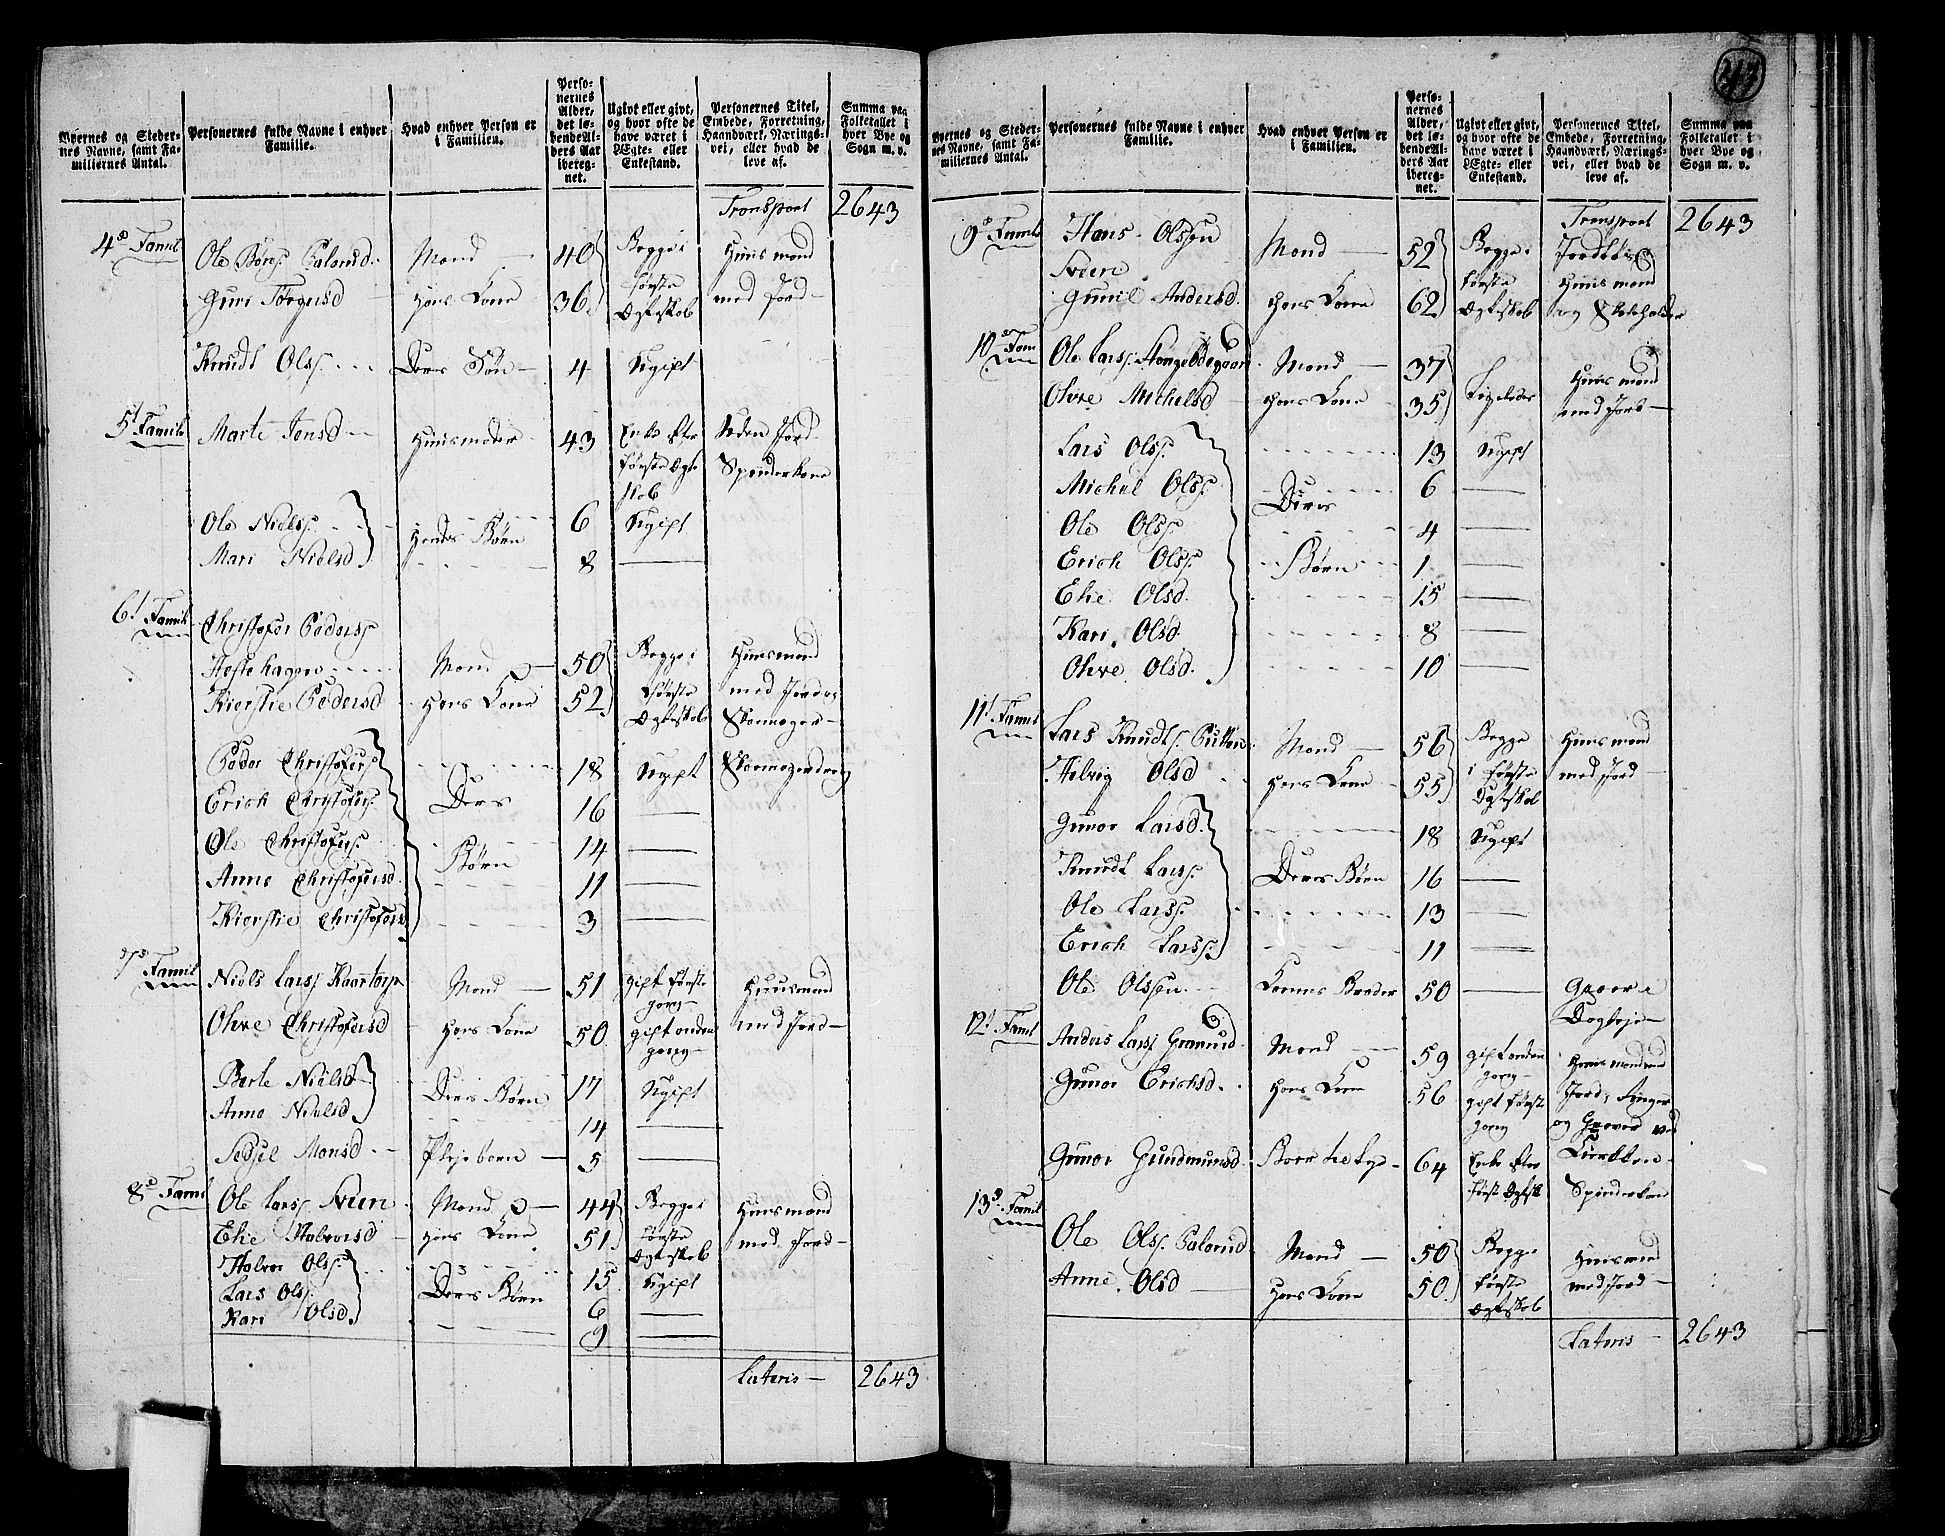 217
Byernes og Stedernes Navne, samt Familiernes Antal.
Personernes fulde Navne i enhver Familie.
Hvad enhver Person er i Familien.
Personernes Alder, det løbende Alders Aar iberegnet.
Ugivt eller givt, og hvor ofte de have været i Ægte- eller Enkestand.
Personernes Titel, Embede, Forretning, Haandværk, Næringsvei, eller hvad de leve af.
Summa paa Folketallet i hver Bye og Sogn m. v.
Transport 2643
4de Famil Ole Mand 40 Begge i Huusmand
Guri Torgersd Hans Kone 36 første med Jord
Ægteskab
Knudt Olss. Deres Søn 4 Ugift
5t Famile Marte Jensd Huusmoder 43 Enke efter Uden Jord
første Ægte Spinderkone
skab
Ole Nielss. 6 Ugift
Hendes Børn
Mari Nielsd 8
6t Famil Christofer Pederss
Hestehagen Mand 50 Begge i Huusmand
Kierstie Pedersd Hans Kone 52 første med Jord og
Ægteskab Skomager
Peder Christoferss. 18 Ugift Skomagerdreng
Erich Christoferss. Deres 16
Ole Christoferss. 14
Anne Christofersd. Børn 11
Kierstie Christofersd 3
7de Famil Niels Larss Mand 51 gift første Huusmand
gang
Olive Christofersd Hans Kone 50 gift anden med Jord
gang
Berte Nielsd Deres Børn 17 Ugift
Anne Nielsd 14
Sedsel Monsd Plejebarn 5
8de Famil Ole Larss. Svien Mand 44 Begge i Huusmand
Elie Halvorsd Hans Kone 51 første med Jord
Halvor Olss. Ægteskab
Lars Olss. Deres Børn 15 Ugift
Kari Olsd 6
9
Lateris 2643
Byernes og Stedernes Navne, samt Familiernes Antal.
Personernes fulde Navne i enhver Familie.
Hvad enhver Person er i Familien.
Personernes Alder, det løbende Alders Aar iberegnet.
Ugivt eller givt, og hvor ofte de have været i Ægte- eller Enkestand.
Personernes Titel, Embede, Forretning, Haandværk, Næringsvei, eller hvad de leve af.
Summa paa Folketallet i hver Bye og Sogn m. v.
Transport 2643
9de Famile Hans Olssen Mand 52 Begge i
Svien første Huusmand
Gunil Andersd. Hans Kone 62 Ægteskab og Skoleholder
10de Fam Ole Larss. Mand 37 Huusmand
Olive Michelsd Hans Kone 35 Ligeledes med Jord
Lars Olss. 13 Ugift
Michel Olss. Deres 6
Ole Olss. 4
Erich Olss. Børn 1
Elie Olsd. 15
Kari Olsd 8
Olive Olsd. 10
11t Famil Lars Knudts. Mand 56 Begge Huusmand
Helvig Olsd Hans Kone 55 i første med Jord
Ægteskab
Gunor Larsd. 18 Ugift
Knudt Larss. Deres Børn 16
Ole Larss. 13
Erich Larss. 11
Ole Olssen Konens Broder 50
12t Famil Anders Larss Mand 59 gift anden Huusmand med
gang
Gunor Erichsd. Hans Kone 56 gift første Jord,
gang og
Gunor Gundmundsd 64 Enke efter
først Ægtesk Spinderkone
13de Famil
Ole Olss. Mand 50 Begge i Huusmand
Anne Olsd Hans Kone 50 første med Jord
Ægteskab
Lateris 2643